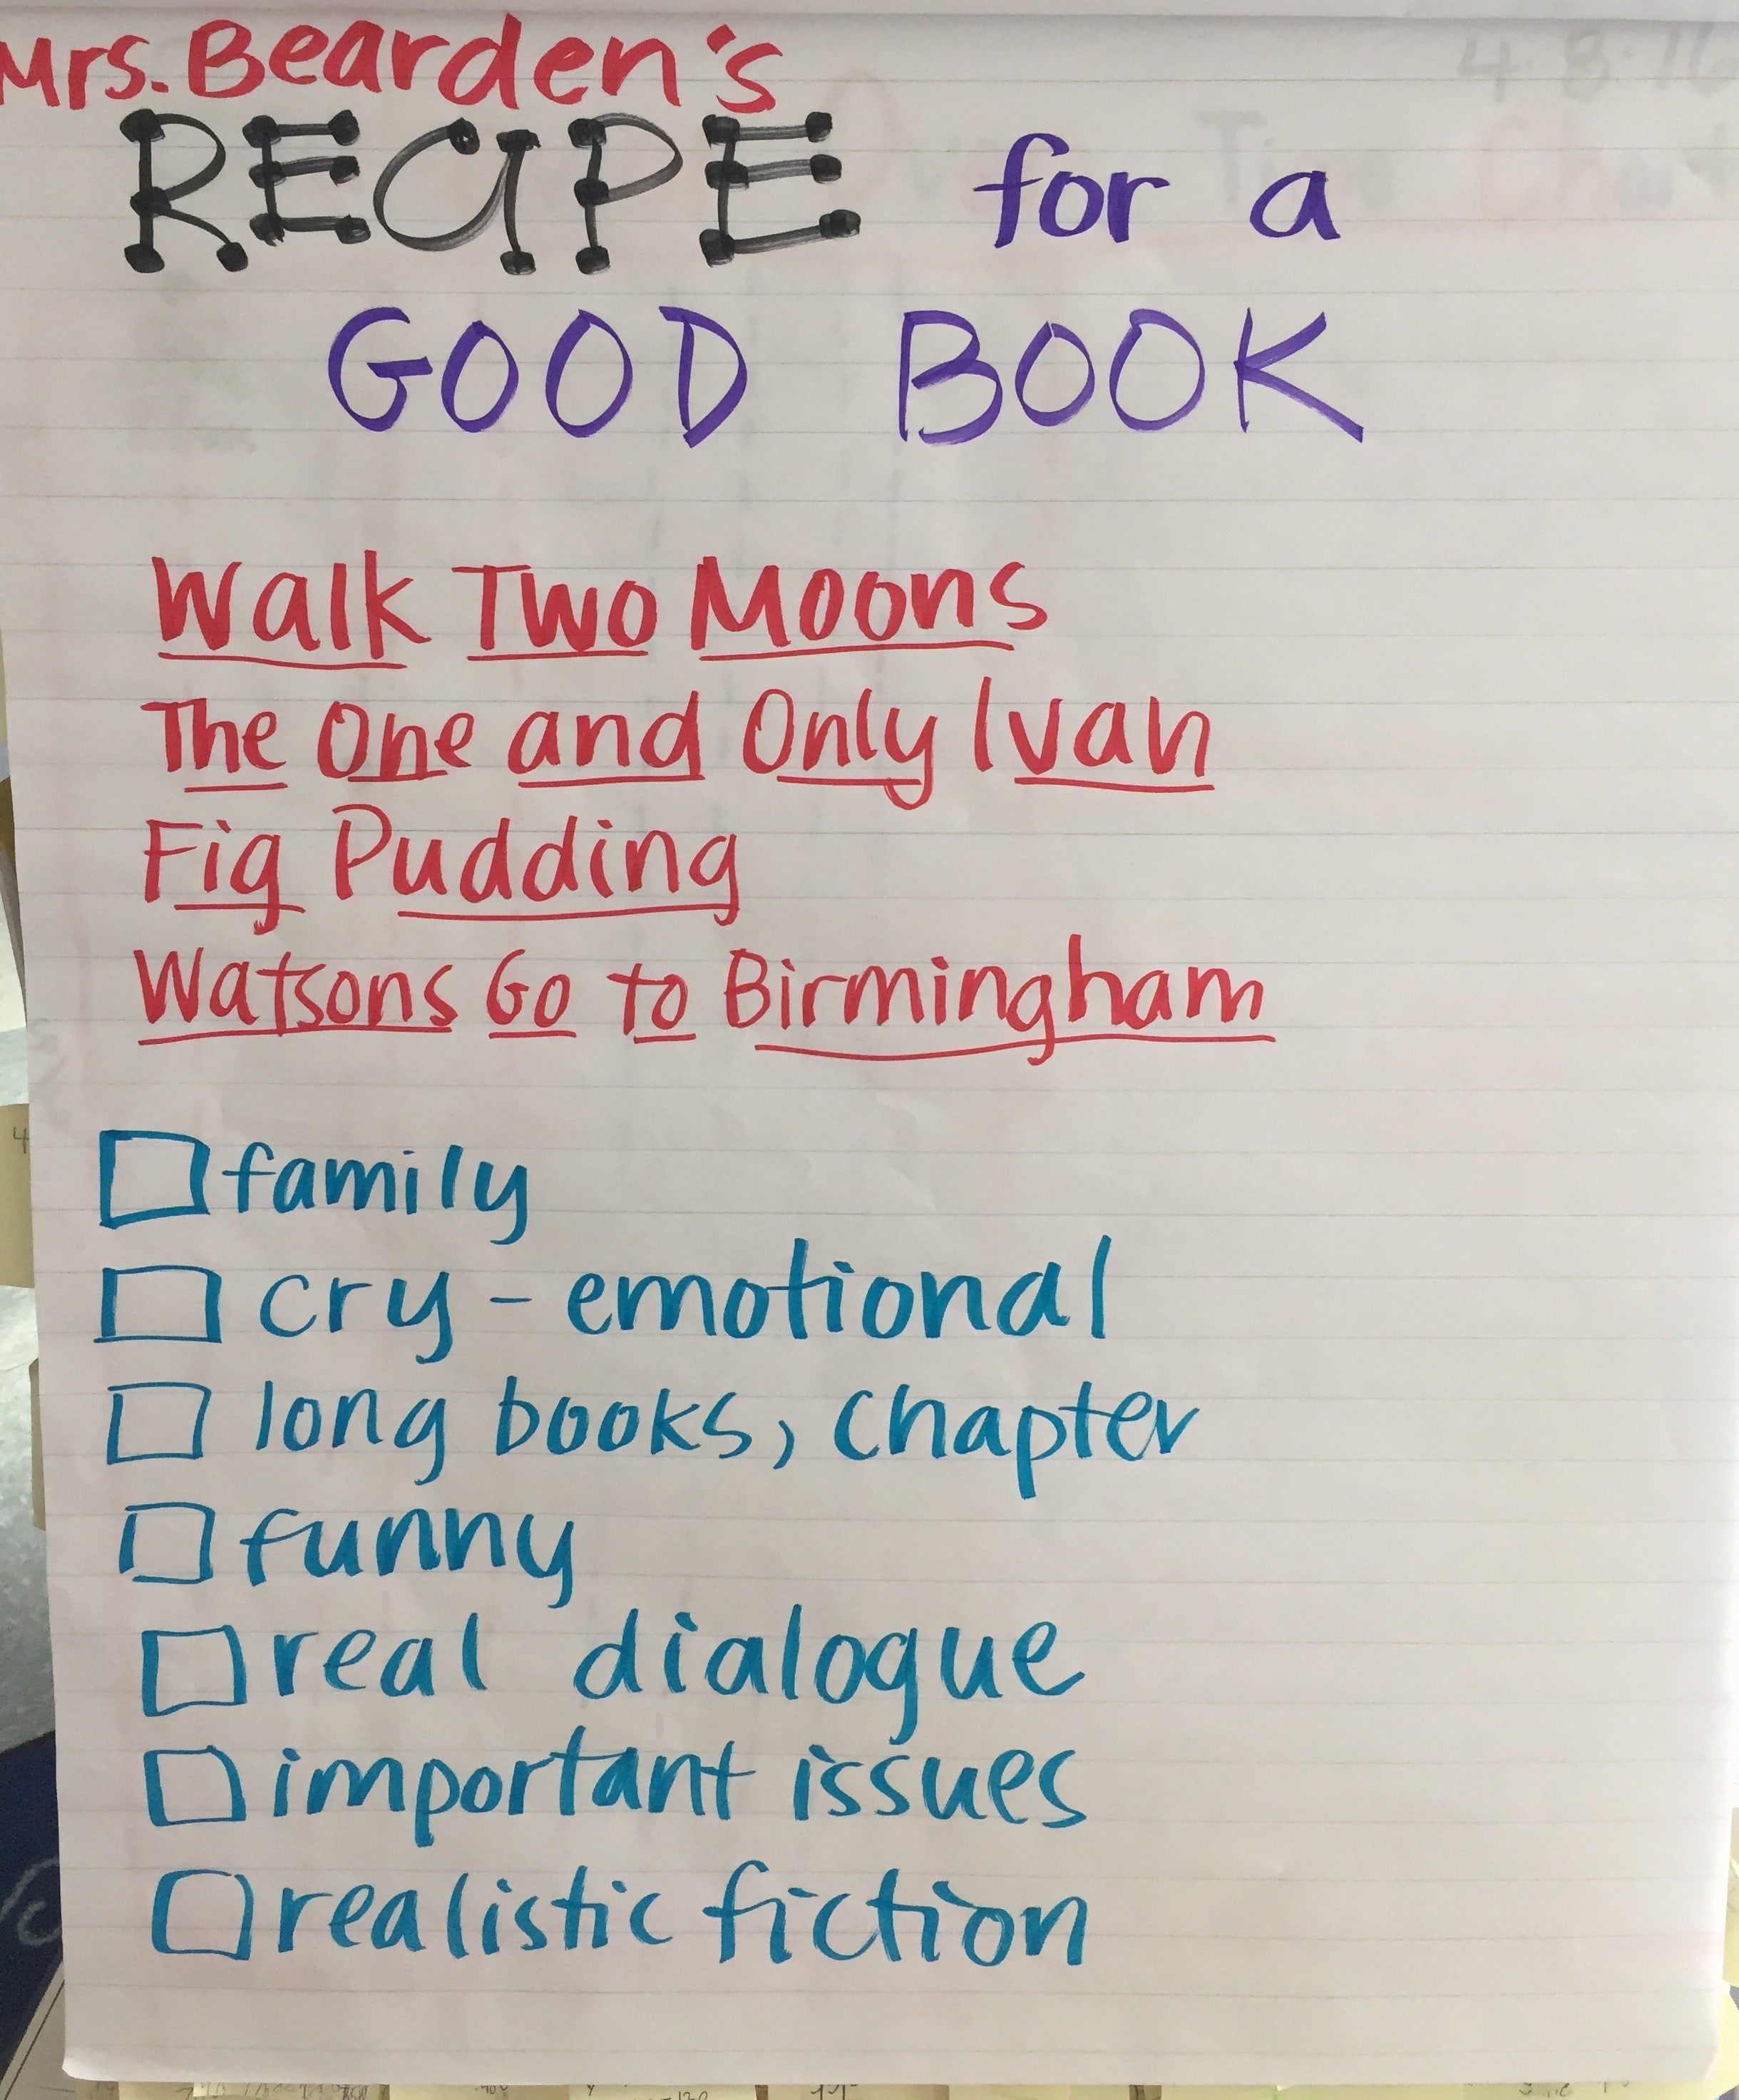 Mrs. Bearden's
RECIPE for a
GOOD BOOK
Walk Two Moons
The One and Only Ivan
Fig Pudding
Watsons Go to Birmingham
family
cry - emotional
long books, chapter
funny
real dialogue
important issues
realistic fiction